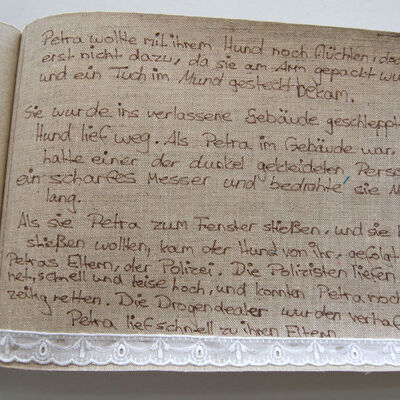 Petra wollte mit ihrem Hund noch flüchten, do
erst nicht dazu, da sie am Arm gepackt wu
und ein Tuch im Mund gesteckt bekam.
Sie wurde ins verlassene Gebäude geschleppt
Hund lief weg. Als Petra im Gebäude war,
hatte einer der dunkel gekleideten Perso
ein scharfes Messer und bedrohte sie M
lang.
Als sie Petra zum Fenster stießen, und sie h
stießen wollten, kam der Hund von ihr, gefolgt
Petras Eltern, der Polizei. Die Polizisten liefen
schnell und leise hoch, und konnten Petra noch
zeitig retten. Die Drogendealer wurden verhaf
Petra lief schnell zu ihren Eltern